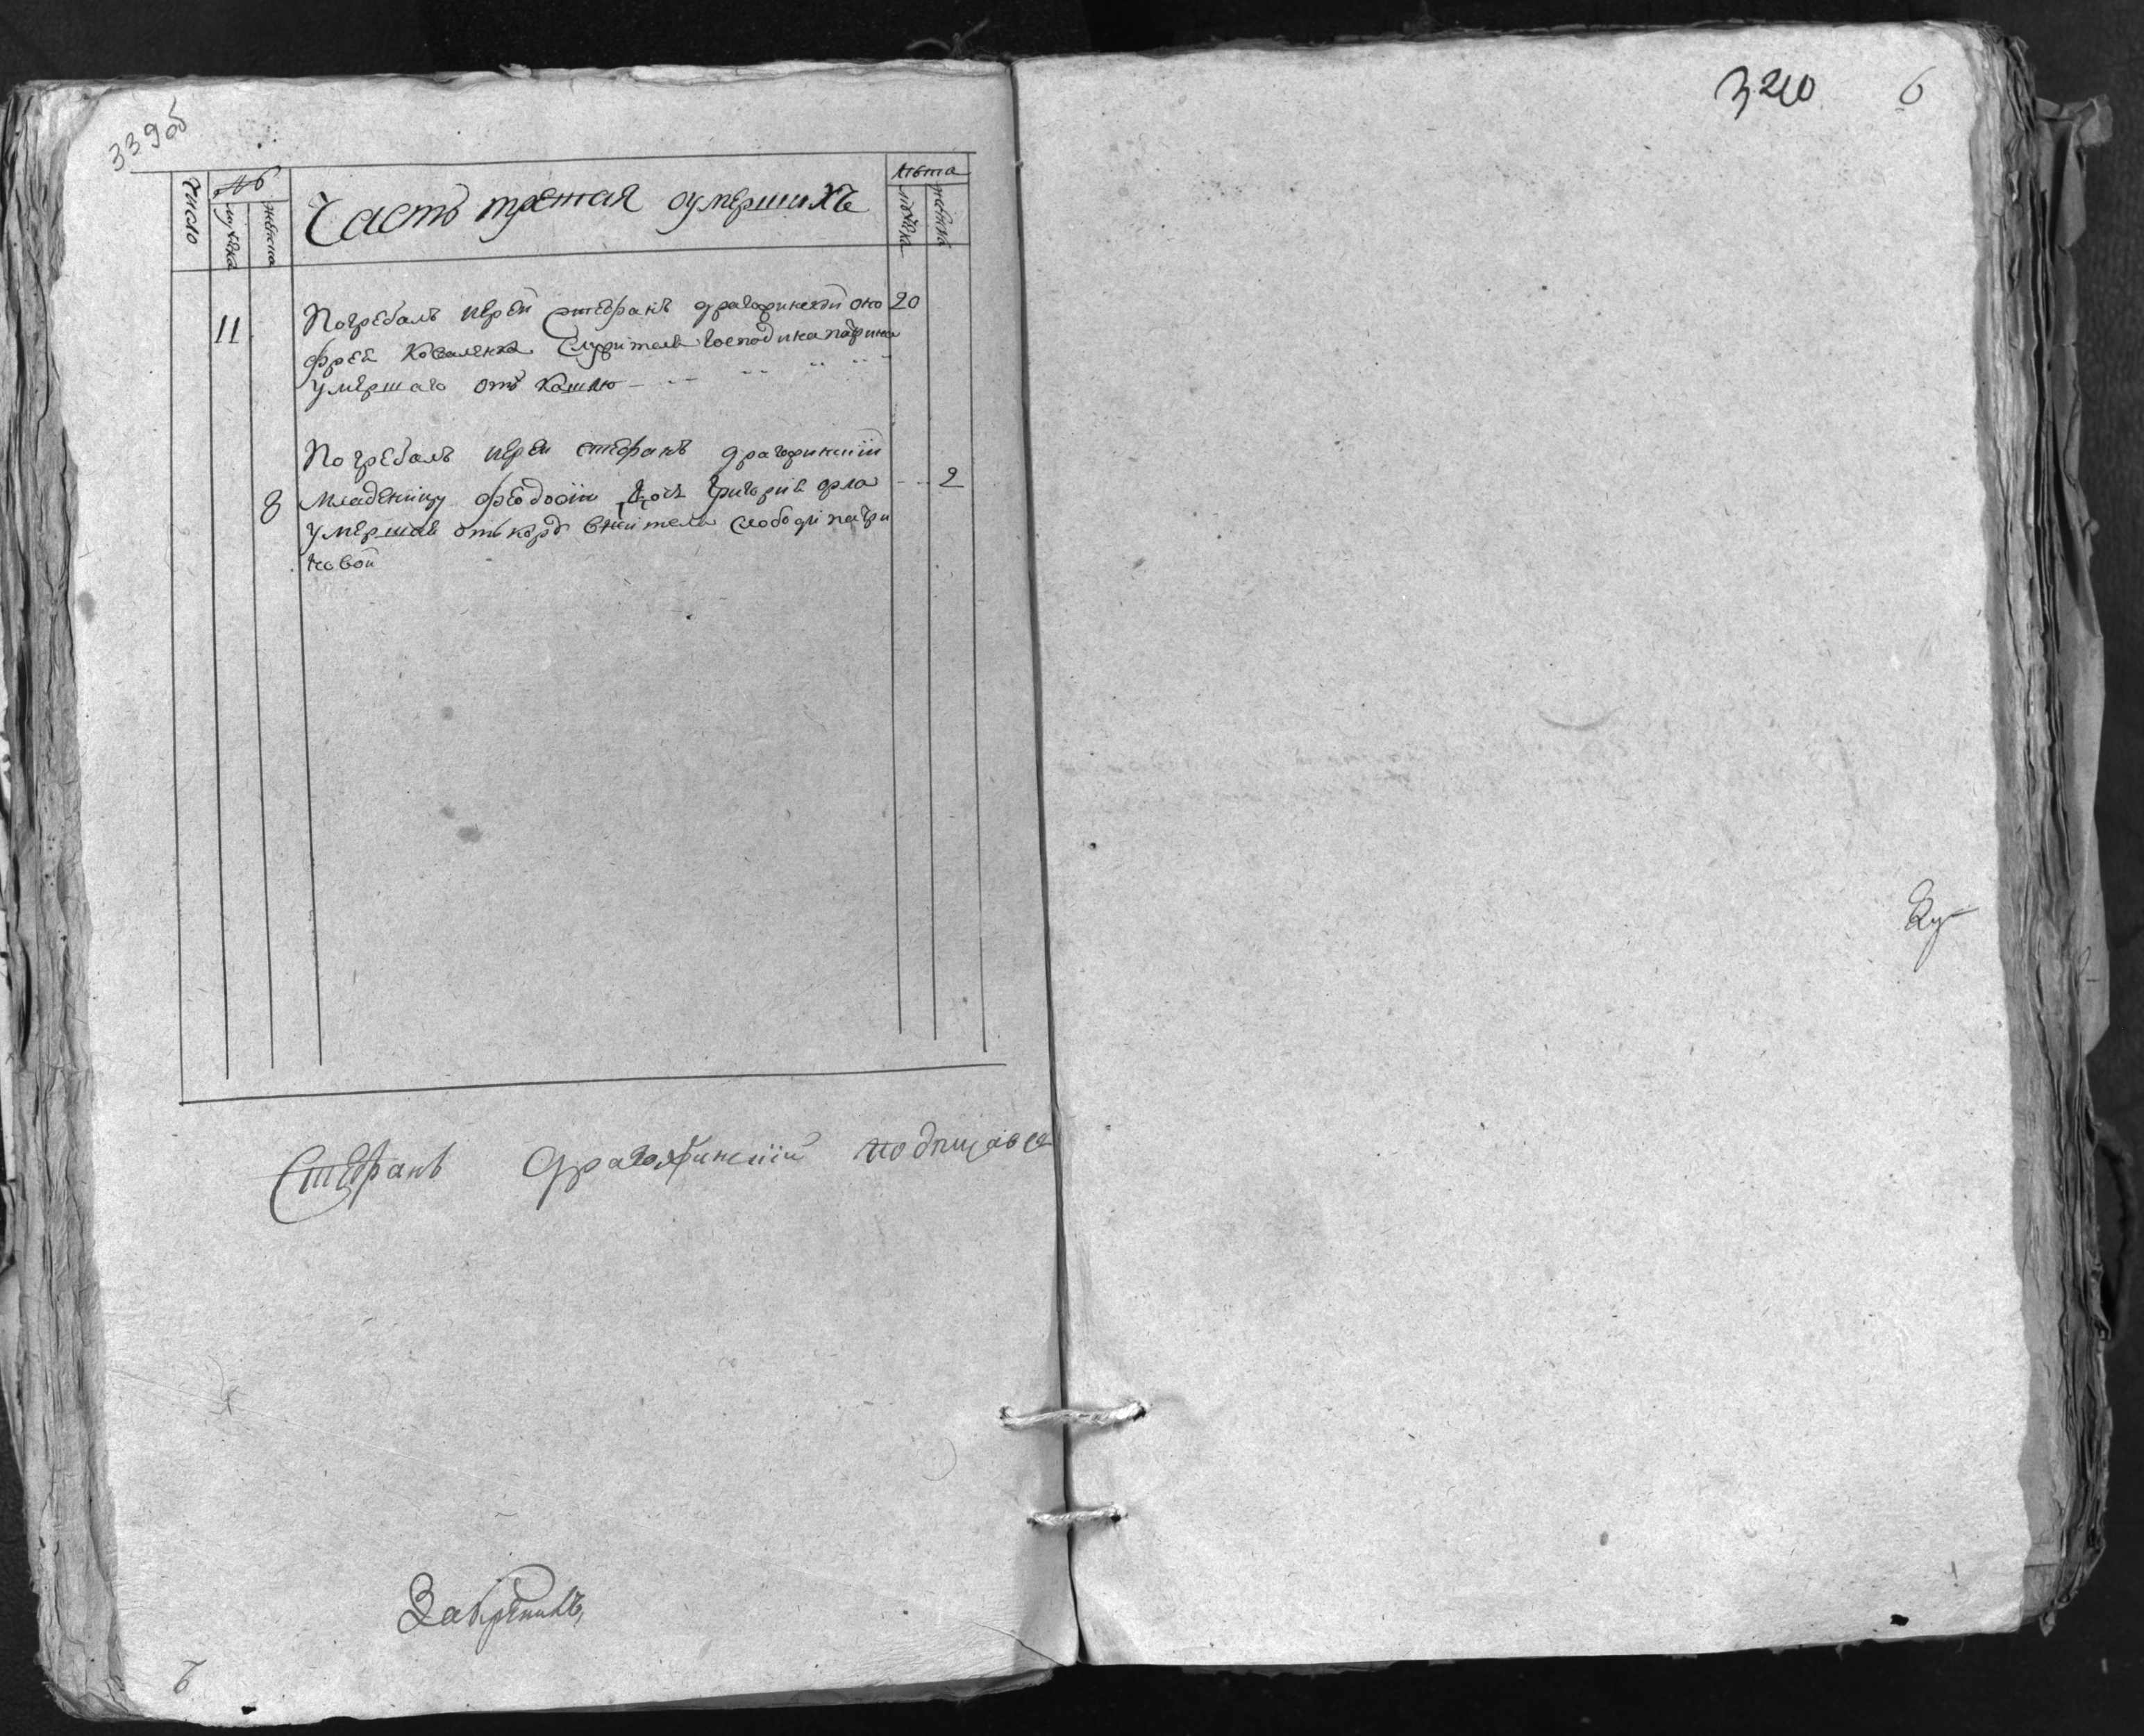 339об
число
№
мужска
женска
Часть третая оумершихъ
лѣта
мужска
женска
11 Погребалъ иерей стефанъ драгожинский оно 20
фрея Коваленка служителя господина
умершаго отъ кашлю
Погребалъ иерей стефанъ драгожинскiй
8 Младеницу феодосiю дочь григорiя орла 2
умершая отъ корѣ жителя слободи
новой
Стефанъ Драгожинскiй подписався
6
340 6